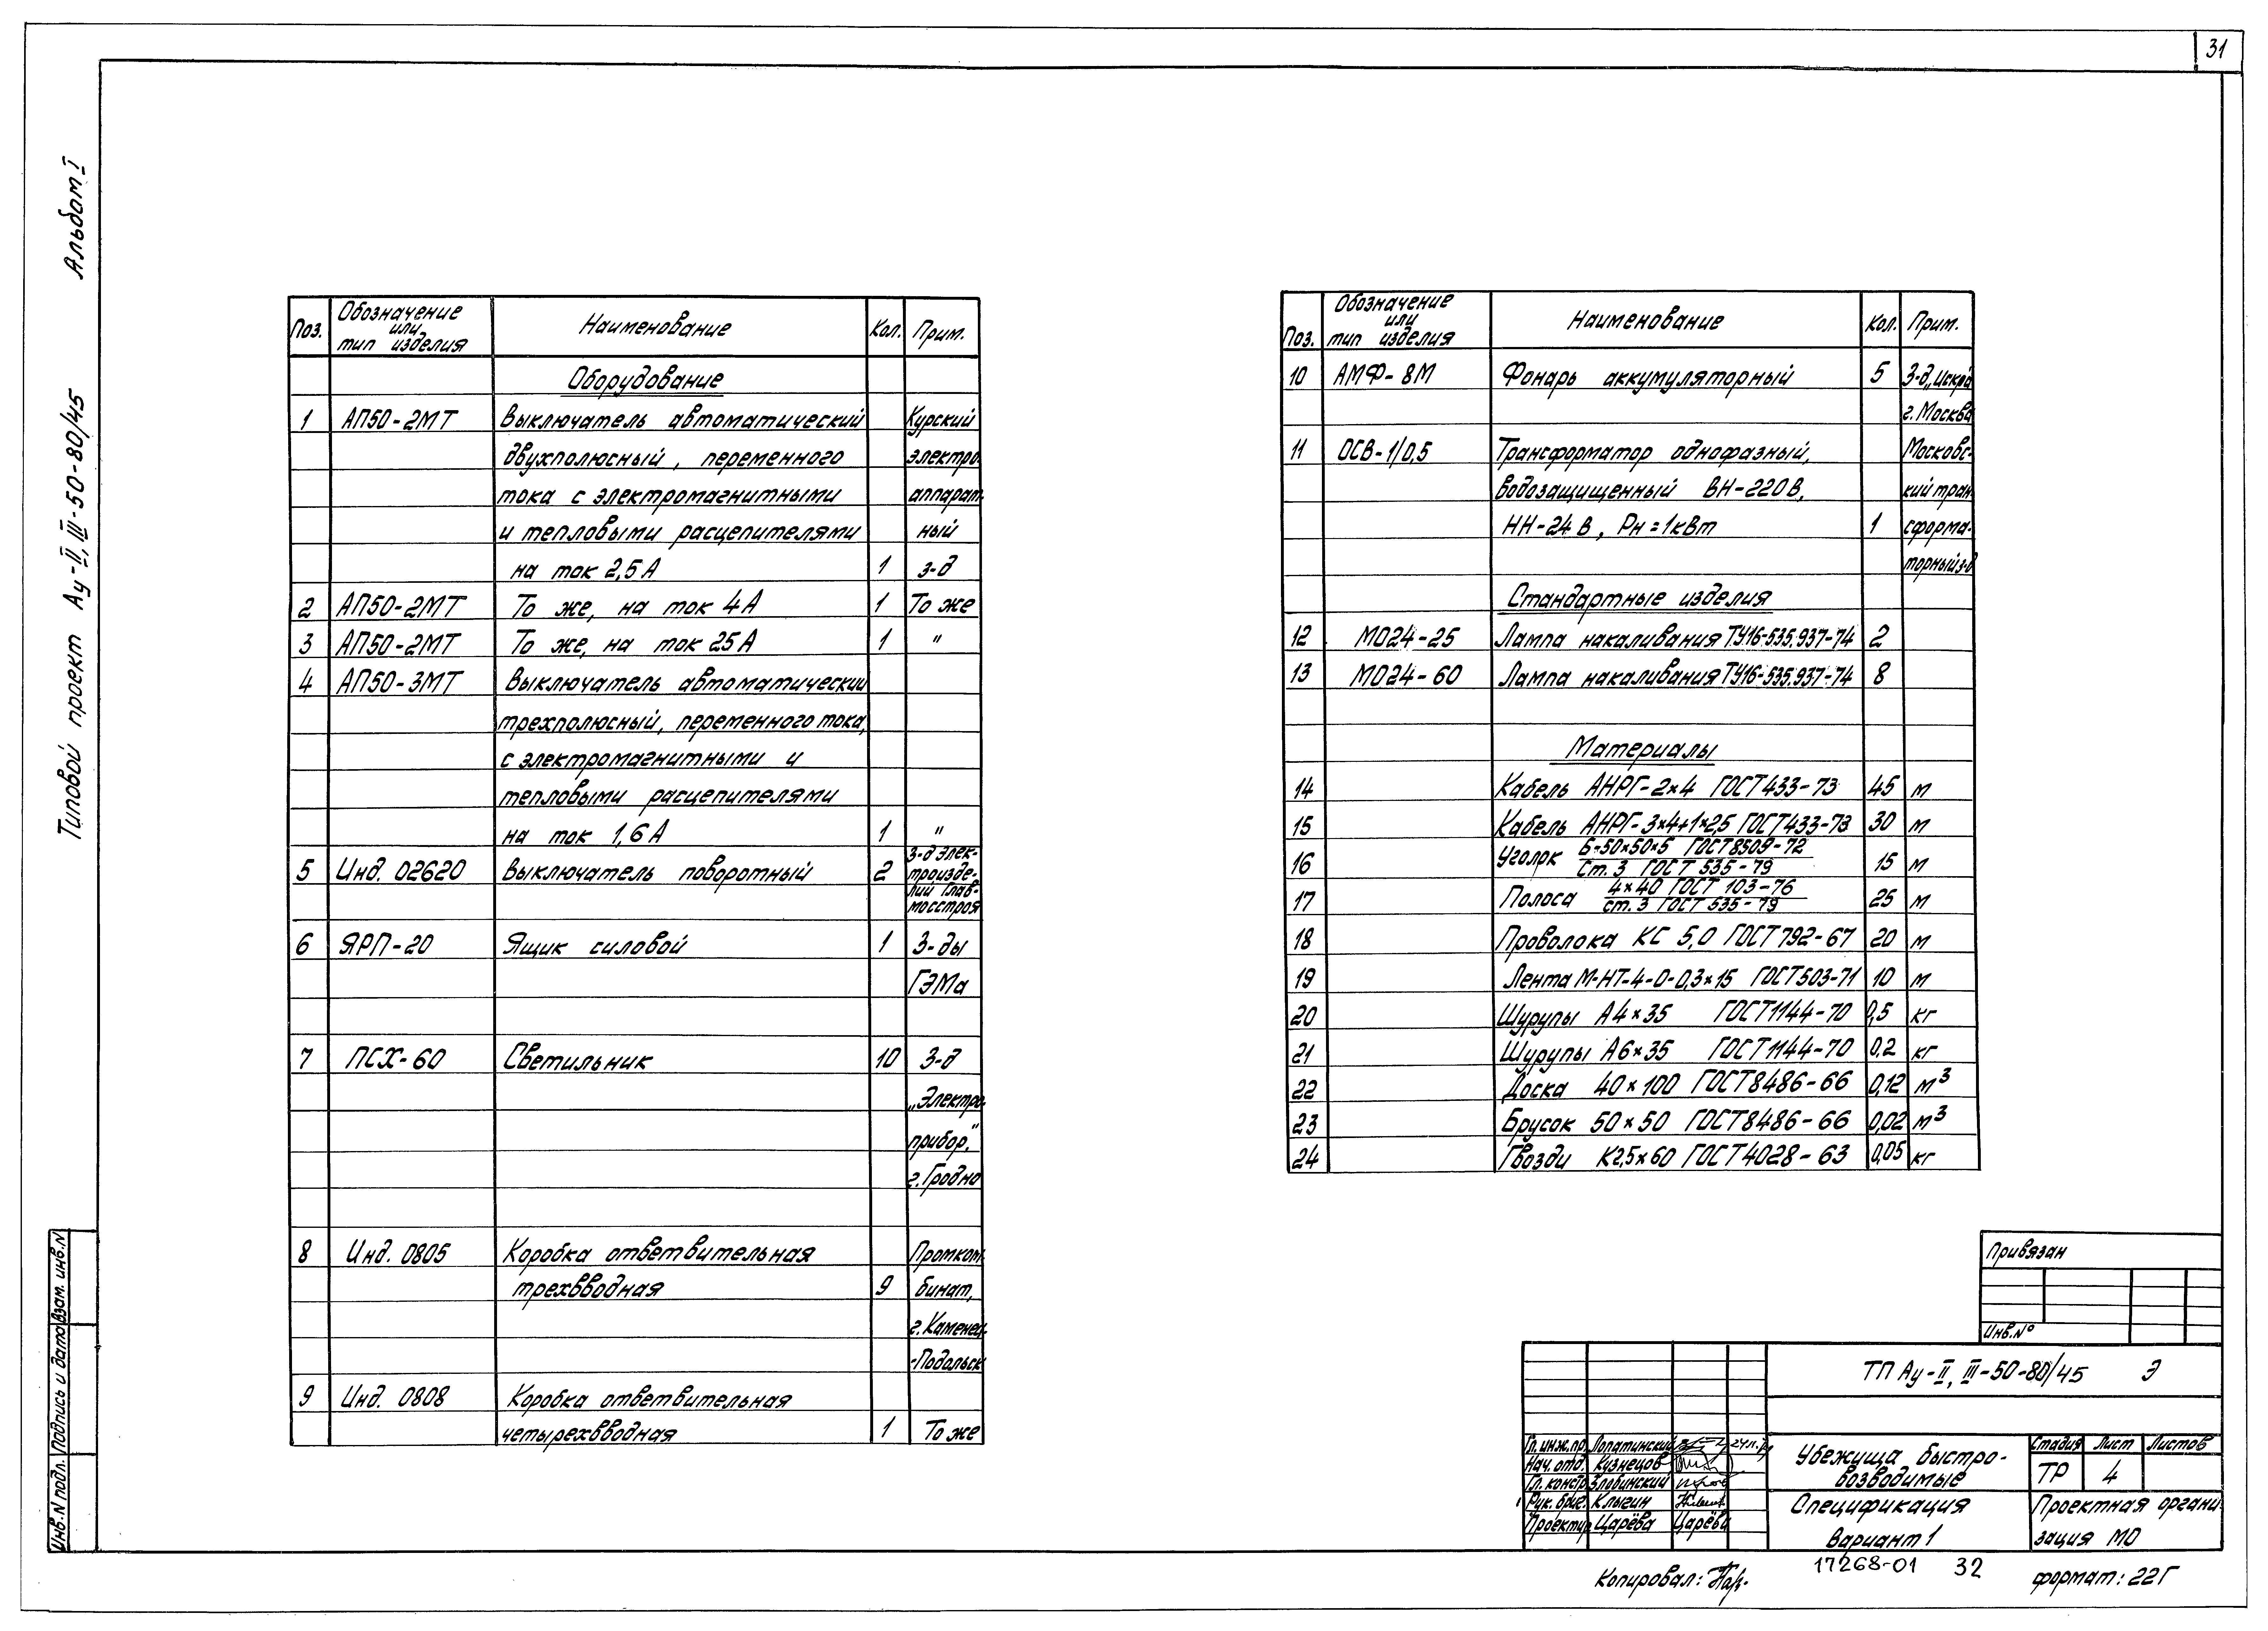 31
Типовой проект Ау-II, III-50-80/45 Альбом I
Поз. Обозначение или тип изделия Наименование Кол. Прим.
Оборудование
1 АП50-2МТ Выключатель автоматический Курский
двухполюсный, переменного электро-
тока с электромагнитными аппарат-
и тепловыми расцепителями ный
на ток 2,5А 1 з-д
2 АП50-2МТ То же, на ток 4А 1 То же
3 АП50-2МТ То же, на ток 25А 1 "
4 АП50-3МТ Выключатель автоматический
трехполюсный, переменного тока,
с электромагнитными и
тепловыми расцепителями
на ток 1,6А 1 "
5 Инд. 02620 Выключатель поворотный 2 З-д элек-
произде-
лий Глав-
мосстроя
6 ЯРП-20 Ящик силовой 1 З-ды
ГЭМа
7 ПСХ-60 Светильник 10 З-д
„Электро-
прибор,"
г. Гродно
8 Инд. 0805 Коробка ответвительная Промком-
трехвводная 9 бинат,
г. Каменец-
-Подольск
9 Инд. 0808 Коробка ответвительная
четырехвводная 1 То же
Поз. Обозначение или тип изделия Наименование Кол. Прим.
10 АМФ-8М Фонарь аккумуляторный 5 З-д „Искра
г. Москва
11 ОСВ-1/0,5 Трансформатор однофазный, Московс-
водозащищенный ВН-220В, кий тран-
НН-24В, Рн=1кВт 1 сформа-
торный з-д
Стандартные изделия
12 МО24-25 Лампа накаливания ТУ16-535.937-74 2
13 МО24-60 Лампа накаливания ТУ16-535.937-74 8
Материалы
14 Кабель АНРГ-2×4 ГОСТ433-73 45 м
15 Кабель АНРГ-3×4+1×2,5 ГОСТ433-73 30 м
16 Уголок Б-50×50×5 ГОСТ8509-72 15 м
Ст.3 ГОСТ 535-79
17 Полоса 4×40 ГОСТ 103-76 25 м
ст.3 ГОСТ 535-79
18 Проволока КС 5,0 ГОСТ792-67 20 м
19 Лента М-НТ-4-0-0,3×15 ГОСТ503-71 10 м
20 Шурупы А4×35 ГОСТ1144-70 0,5 кг
21 Шурупы А6×35 ГОСТ1144-70 0,2 кг
22 Доска 40×100 ГОСТ8486-66 0,12 м³
23 Брусок 50×50 ГОСТ8486-66 0,02 м³
24 Гвозди К2,5×60 ГОСТ4028-63 0,05 кг
Привязан
Инв.№
ТП Ау-II, III-50-80/45 Э
Гл. инж.пр. Лопатинский
Нач. отд. Кузнецов
Гл. констр. Злобинский
Рук. бриг. Клыгин
Проектир. Царёва Царёва
Убежища быстро-
возводимые
Стадия Лист Листов
ТР 4
Спецификация
Вариант 1
Проектная органи
зация МО
Копировал:
17268-01 32
формат: 22Г
Инв.N подл. Подпись и дата Взам. инв.N